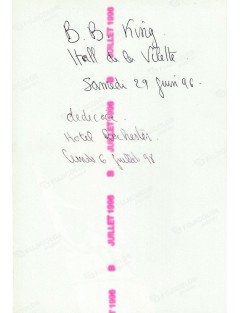 B. B King
Hall de la Villette
Samedi 29 Juin 96.
dedicace
Hotel
6 juillet 96
JUILLET 1996
8
JUILLET 1996
8
JUILLET 1996
8
JUILLET 1996